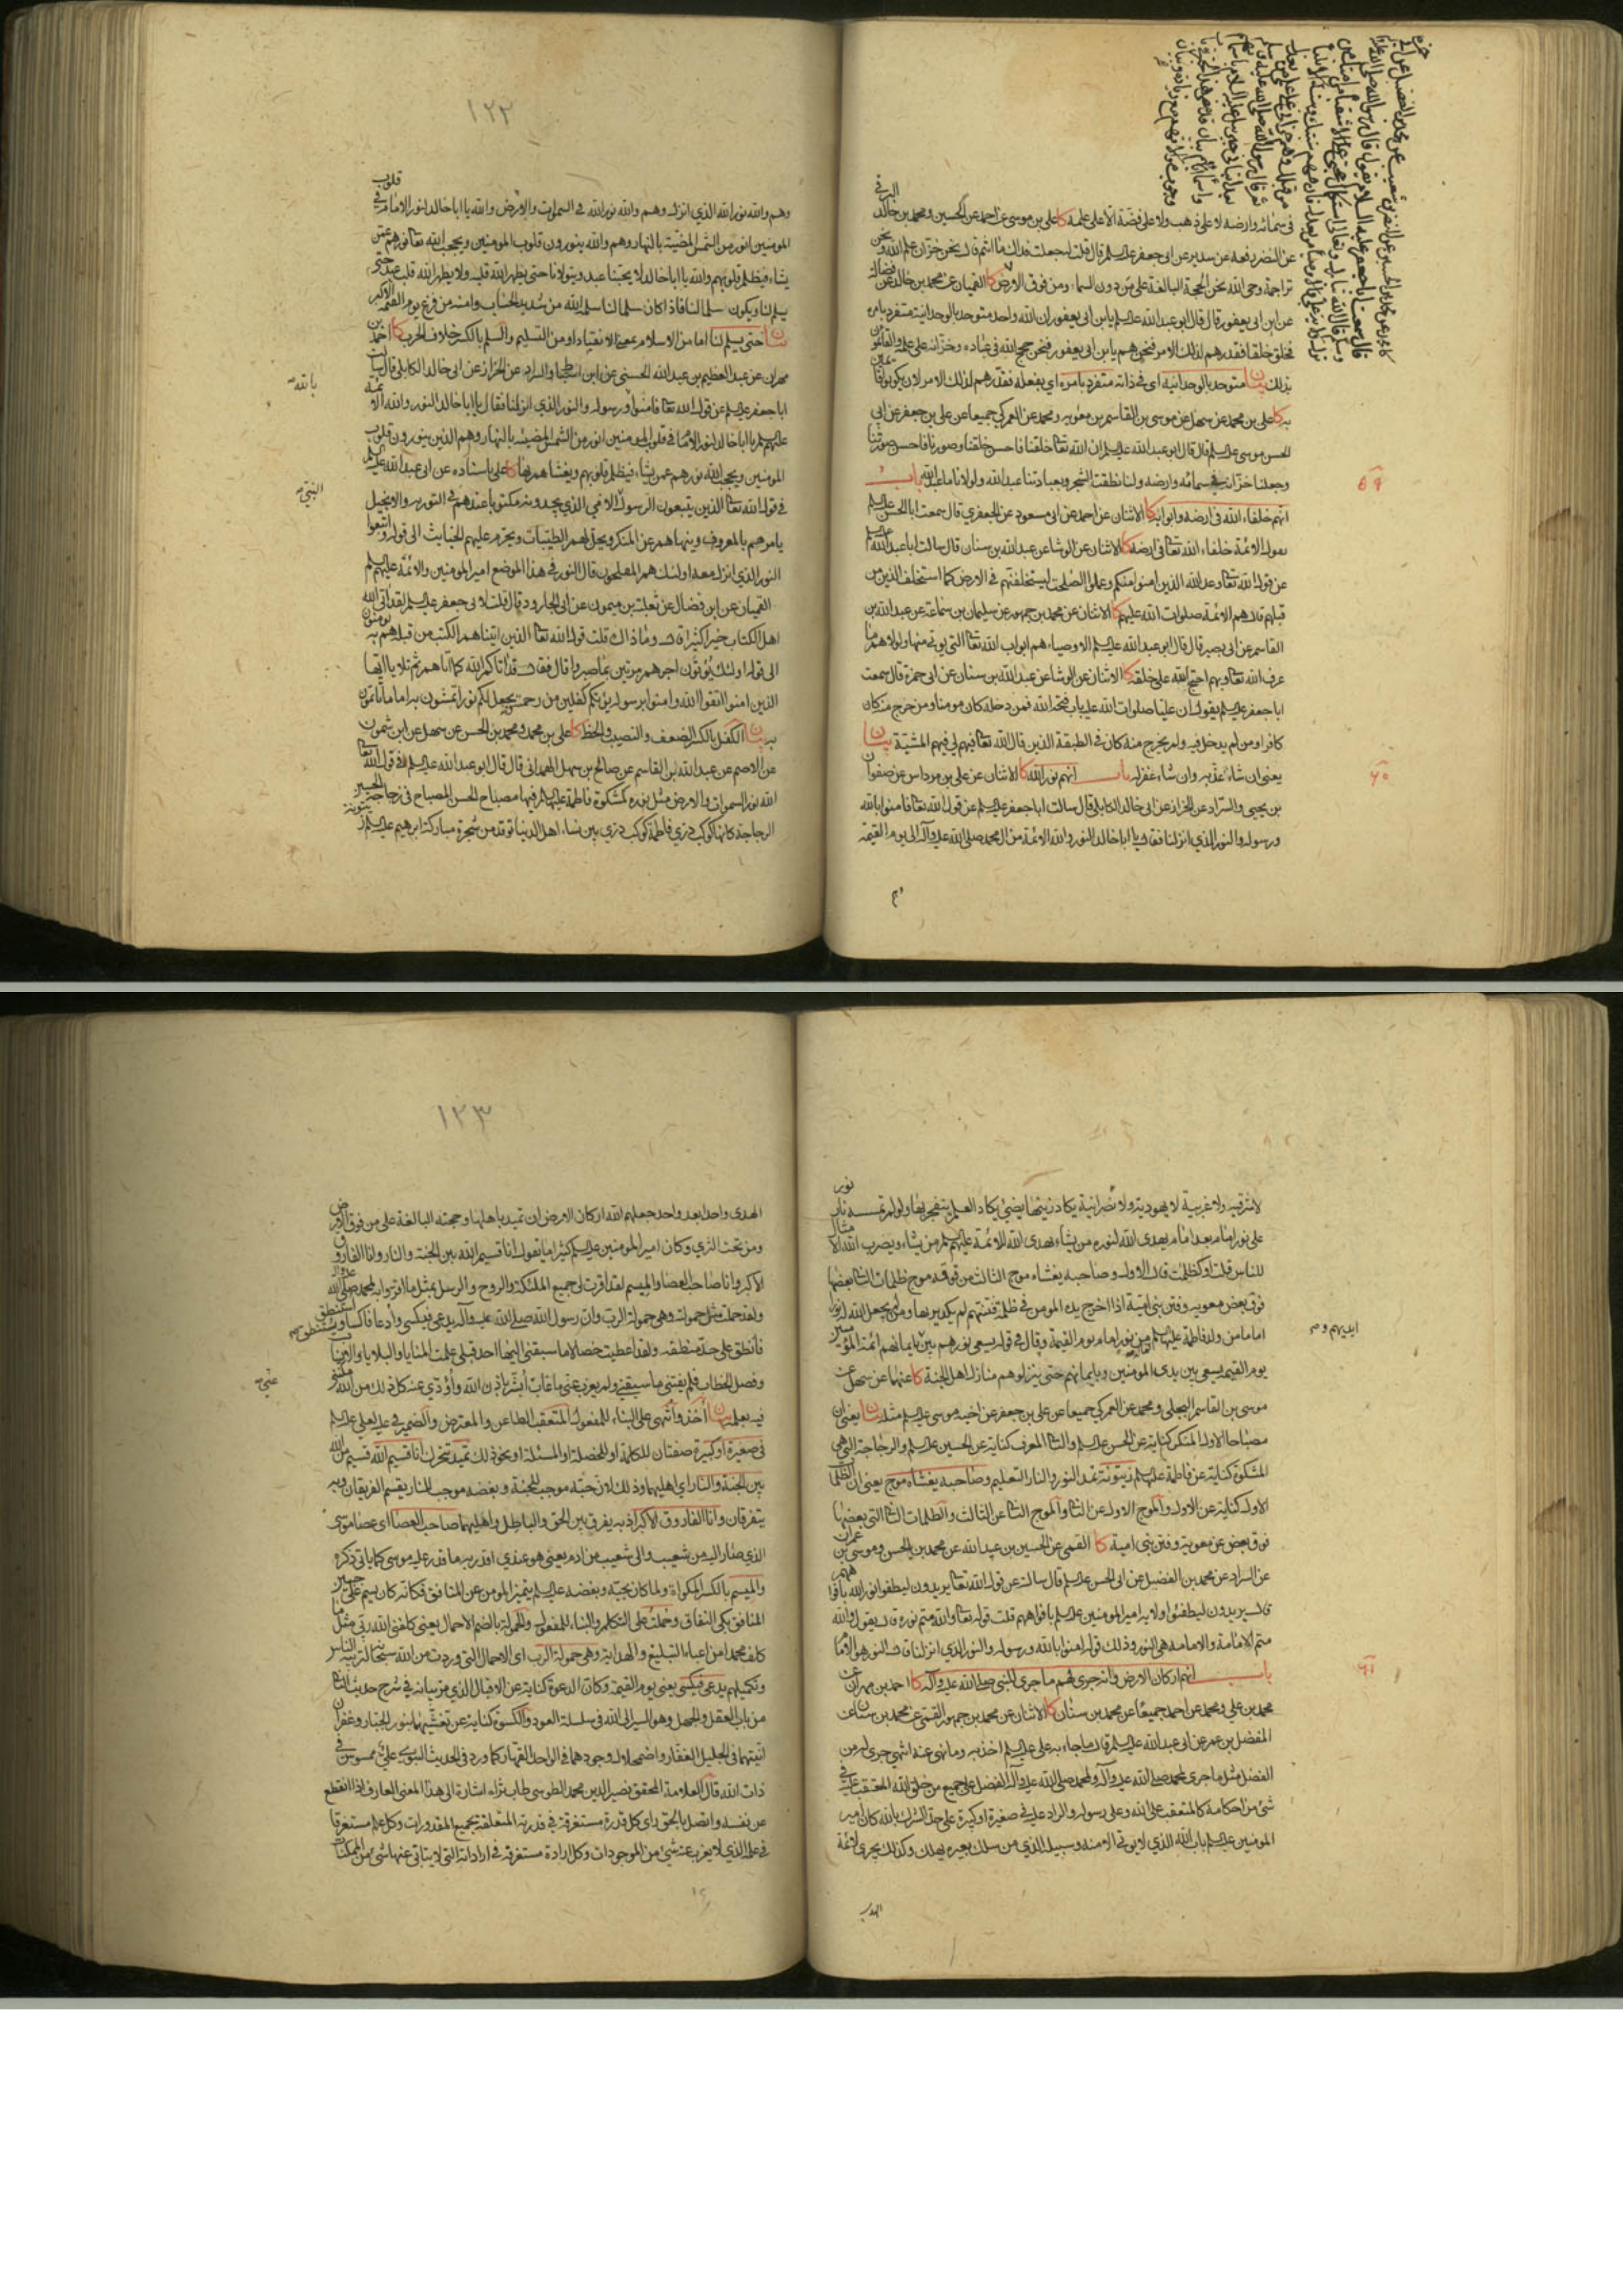 في سمائه وارضه لا على ذهب ولا على فضة الا على علمه كا على بن موسى عن احمد عن الحسين ومحمد بن خالد البرقي
عن النضر رفعه عن سدير عن ابى جعفر عليه السلم قال قلت له جعلت فداك ما انتم قال نحن خزان علم الله ونحن
تراجمة وحى الله نحن الحجة البالغة على من دون السماء ومن فوق الارض كا القميان عن محمد بن خالد عن فضالة
عن ابن ابى يعفور قال قال ابو عبد الله عليه السلم يا بن ابى يعفور ان الله واحد متوحد بالوحدانية متفرد بامره
فخلق خلقا فقدرهم لذلك الامر فنحن هم يا بن ابى يعفور فنحن حجج الله في عباده وخزانه على علمه والقائمون
بذلك بيان متوحد بالوحدانية اى في ذاته متفرد بامره اى بفعله فقدرهم لذلك الامر لان يكونوا قائمين
به كا على بن محمد عن سهل عن موسى بن القاسم بن معويه ومحمد عن العمركي جميعا عن على بن جعفر عن ابى
الحسن موسى عليه السلم قال قال ابو عبد الله عليه السلم ان الله تعا خلقنا فاحسن خلقنا وصورنا فاحسن صورنا
وجعلنا خزانه في سمائه وارضه ولنا نطقت الشجر وبعبادتنا عبد الله ولولانا ما عبد الله باب
انهم خلفاء الله في ارضه وابوابه كا الاثنان عن احمد عن ابى مسعود عن الجعفري قال سمعت ابا الحسن عليه السلم
يقول الائمة خلفاء الله تعا في ارضه كا الاثنان عن الوشا عن عبد الله بن سنان قال سالت ابا عبد الله عليه السلم
عن قول الله تعا وعد الله الذين امنوا منكم وعملوا الصلحت ليستخلفنهم في الارض كما استخلف الذين من
قبلهم قال هم الائمة صلوات الله عليهم كا الاثنان عن محمد بن جمهور عن سليمان بن سماعة عن عبد الله بن
القاسم عن ابى بصير قال قال ابو عبد الله عليه السلم الاوصياء هم ابواب الله تعا التى يوتى منها ولولاهم ما
عرف الله تعا وبهم احتج الله على خلقه كا الاثنان عن الوشا عن عبد الله بن سنان عن ابى حمزة قال سمعت
ابا جعفر عليه السلم يقول ان عليا صلوات الله عليه باب فتحه الله فمن دخله كان مومنا ومن خرج منه كان
كافرا ومن لم يدخل فيه ولم يخرج منه كان في الطبقة الذين قال الله تعا فيهم لى فيهم المشية بيان
يعنى ان شاء عذبهم وان شاء غفر لهم باب انهم نور الله كا الاثنان عن على بن مرداس عن صفوان
بن يحيى والسراد عن الخزاز عن ابى خالد الكابلى قال سالت ابا جعفر عليه السلم عن قول الله تعا فامنوا بالله
ورسوله والنور الذي انزلنا فقال يا ابا خالد النور والله الائمة من ال محمد صلى الله عليه وآله الى يوم القيمة
٥٩
٦٠
١٢٢
وهم والله نور الله الذي انزل وهم والله نور الله في السموات والارض والله يا ابا خالد لنور الامام في قلوب
المومنين انور من الشمس المضيئة بالنهار وهم والله ينورون قلوب المومنين ويحجب الله تعا نورهم عمن
يشاء فيظلم قلوبهم والله يا ابا خالد لا يحبنا عبد ويتولانا حتى يطهر الله قلبه ولا يطهر الله قلب عبد حتى
يسلم لنا ويكون سلما لنا فاذا كان سلما لنا سلمه الله من شديد الحساب وامنه من فزع يوم القيمة الاكبر
بيان حتى يسلم لنا اما من الاسلام بمعنى الانقياد او من التسليم والسلم بالكسر خلاف الحرب كا احمد بن
مهران عن عبد العظيم بن عبد الله الحسنى عن ابن اسباط والسراد عن الخزاز عن ابى خالد الكابلى قال سالت
ابا جعفر عليه السلم عن قول الله تعا فامنوا ورسوله والنور الذي انزلنا فقال يا ابا خالد النور والله الائمة
بالله
عليهم السلم يا ابا خالد لنور الامام في قلوب المومنين انور من الشمس المضيئة بالنهار وهم الذين ينورون قلوب
المومنين ويحجب الله نورهم عمن يشاء فيظلم قلوبهم ويغشاهم بها كا على باسناده عن ابى عبد الله عليه السلم
في قول الله تعا الذين يتبعون الرسول الامي الذي يجدونه مكتوبا عندهم في التورية والانجيل
النبى
يامرهم بالمعروف وينهاهم عن المنكر ويحل لهم الطيبات ويحرم عليهم الخبايث الى قوله واتبعوا
النور الذي انزل معه اولئك هم المفلحون قال النور في هذا الموضع امير المومنين والائمة عليهم السلم
القميان عن ابن فضال عن ثعلبة بن ميمون عن ابى الجارود قال قلت لابى جعفر عليه السلم لقد اتى الله
اهل الكتاب خيرا كثيرا قال وما ذاك قلت قول الله تعا الذين اتيناهم الكتب من قبله هم به يومنون
الى قوله اولئك يؤتون اجرهم مرتين بما صبروا قال فقال قد اتاكم الله كما اتاهم ثم تلا يا ايها
الذين امنوا اتقوا الله وامنوا برسوله يؤتكم كفلين من رحمته ويجعل لكم نورا تمشون به اماما تاتمون
به بيان الكفل بالكسر الضعف والنصيب والحظ كا على بن محمد ومحمد بن الحسن عن سهل عن ابن شمون
عن الاصم عن عبد الله بن القاسم عن صالح بن سهل الهمدانى قال قال ابو عبد الله عليه السلم في قول الله تعا
الله نور السموات والارض مثل نوره كمشكوة فاطمة عليها السلم فيها مصباح الحسن المصباح في زجاجة الحسين
الزجاجة كانها كوكب دري فاطمة كوكب دري بين نساء اهل الدنيا توقد من شجرة مباركة ابرهيم عليه السلم زيتونة
لا شرقية ولا غربية لا يهودية ولا نصرانية يكاد زيتها يضيئ يكاد العلم ينفجر بها ولو لم تمسسه نار نور
على نور امام بعد امام يهدى الله لنوره من يشاء يهدى الله للائمة عليهم السلم من يشاء ويضرب الله الامثال
للناس قلت او كظلمات قال الاول وصاحبه يغشاه موج الثالث من فوقه موج ظلمات الثانى بعضها
فوق بعض معويه وفتن بنى امية اذا اخرج يده المومن في ظلمة فتنتهم لم يكد يريها ومن لم يجعل الله له نورا
اماما من ولد فاطمة عليها السلم فما له من نور امام يوم القيمة وقال في قوله يسعى نورهم بين ايديهم وبايمانهم ائمة المؤمنين
يوم القيمة يسعى بين يدى المومنين وبايمانهم حتى ينزلوهم منازل اهل الجنة كا عنهما عن سهل عن
موسى بن القاسم البجلى ومحمد عن العمركي جميعا عن على بن جعفر عن اخيه موسى عليه السلم مثله بيان يعنى ان
مصباحا الاول المنكر كناية عن الحسن عليه السلم والثانى المعرف كناية عن الحسين عليه السلم والزجاجة التى هي
المشكوة كناية عن فاطمة عليها السلم والنار التعليم وصاحبه يغشاه موج يعنى ان الظلمات
الاول كناية عن الاول والموج الاول عن الثانى والموج الثانى عن الثالث والظلمات الثانى التى بعضها
فوق بعض عن معوية وفتن بنى امية كا القمى عن الحسين بن عبيد الله عن محمد بن الحسن وموسى بن عمران
عن السراد عن محمد بن الفضيل عن ابى الحسن عليه السلم قال سالته عن قول الله تعا يريدون ليطفؤا نور الله بافواههم
قال يريدون ليطفئوا ولاية امير المومنين عليه السلم بافواههم قلت قوله تعا والله متم نوره قال يقول والله
متم الامامة والامامة هى النور وذلك قوله امنوا بالله ورسوله والنور الذي انزلنا قال النور هو الامام
باب انهم اركان الارض وانه جرى لهم ما جرى للنبى صلى الله عليه وآله كا احمد بن مهران عن
محمد بن على ومحمد عن احمد جميعا عن محمد بن سنان كا الاثنان عن محمد بن جمهور القمى عن محمد بن سنان عن
المفضل بن عمر عن ابى عبد الله عليه السلم قال ما جاء به على عليه السلم اخذ به وما نهى عنه انتهى جرى له من
الفضل مثل ما جرى لمحمد صلى الله عليه وآله ولمحمد صلى الله عليه وآله الفضل على جميع من خلق الله المتعقب عليه في
شئ من احكامه كالمتعقب على الله وعلى رسوله والراد عليه في صغيرة او كبيرة على حد الشرك بالله كان امير
المومنين عليه السلم باب الله الذي لا يوتى الا منه وسبيله الذي من سلك بغيره يهلك وكذلك يجرى لائمة
٦١
١٢٣
الهدى واحدا بعد واحد جعلهم الله اركان الارض ان تميد باهلها وحجته البالغة على من فوق الارض
ومن تحت الثرى وكان امير المومنين عليه السلم كثيرا ما يقول انا قسيم الله بين الجنة والنار وانا الفاروق
الاكبر وانا صاحب العصا والميسم لقد اقرت لى جميع الملئكة والروح والرسل بمثل ما اقروا به لمحمد صلى الله عليه وآله
ولقد حملت مثل حمولته وهى حمولة الرب وان رسول الله صلى الله عليه وآله يدعى فيكسى وأدعا فاكسا ويستنطق واستنطق
فانطق على حد منطقه ولقد اعطيت خصالا ما سبقنى اليها احد قبلى علمت المنايا والبلايا والانساب
وفصل الخطاب فلم يفتنى ما سبقنى ولم يعزب عنى ما غاب ابشر باذن الله وأؤدي عنه كل ذلك من الله مكننى
عنى
فيه بعلمه بيان اخذ وانتهى على البناء للمفعول المتعقب الطاعن والمعترض والضمير في عليه لعلى عليه السلم
في صغيرة او كبيرة صفتان للكلمة او الخصلة او المسئلة او نحو ذلك تميد تتحرك انا قسيم الله قسيم من الله
بين الجنة والنار اي اهليهما وذلك لان حبه موجب للجنة وبغضه موجب للنار يقسم الفريقان وبه
يتفرقان وانا الفاروق الاكبر اذ به يفرق بين الحق والباطل واهليهما صاحب العصا اى عصا موسى
الذي صار اليه من شعيب والى شعيب من ادم يعنى هو عندي اقدر به ما قدر عليه موسى كما ياتى ذكره
والميسم بالكسر المكواة ولما كان بحبه وبغضه عليه السلم يتميز المومن عن المنافق فكانه كان يسم على جبين
المنافق بكى النفاق وحملت على التكلم والبناء للمفعول والحمولة بالضم الاحمال يعنى كلفنى الله ربى مثل ما
كلف محمدا من اعباء التبليغ والهداية وهى حمولة الرب اى الاحمال التى وردت من الله سبحانه لتربية الناس
وتكميلهم يدعى فيكسى يعنى يوم القيمة وكان الدعوة كناية عن الاقبال الذي مر بيانه في شرح حديث
من باب العقل والجهل وهو السير الى الله في سلسلة العود والكسوة كناية عن تغشيهما بنور الجبار وغفران
انيتهما في الجليل الغفار واضمحلال وجودهما في الواحد القهار كما ورد في الحديث النبوى على ممسوس في
ذات الله قال العلامة المحقق نصير الدين محمد الطوسى طاب ثراه اشارة الى هذا المعنى العارف اذا انقطع
عن نفسه واتصل بالحق راى كل قدرة مستغرقة في قدرته المتعلقة بجميع المقدورات وكل علم مستغرقا
في علمه الذي لا يعزب عنه شئ من الموجودات وكل ارادة مستغرقة في ارادته التى لا يتابى عنها شئ من الممكنات